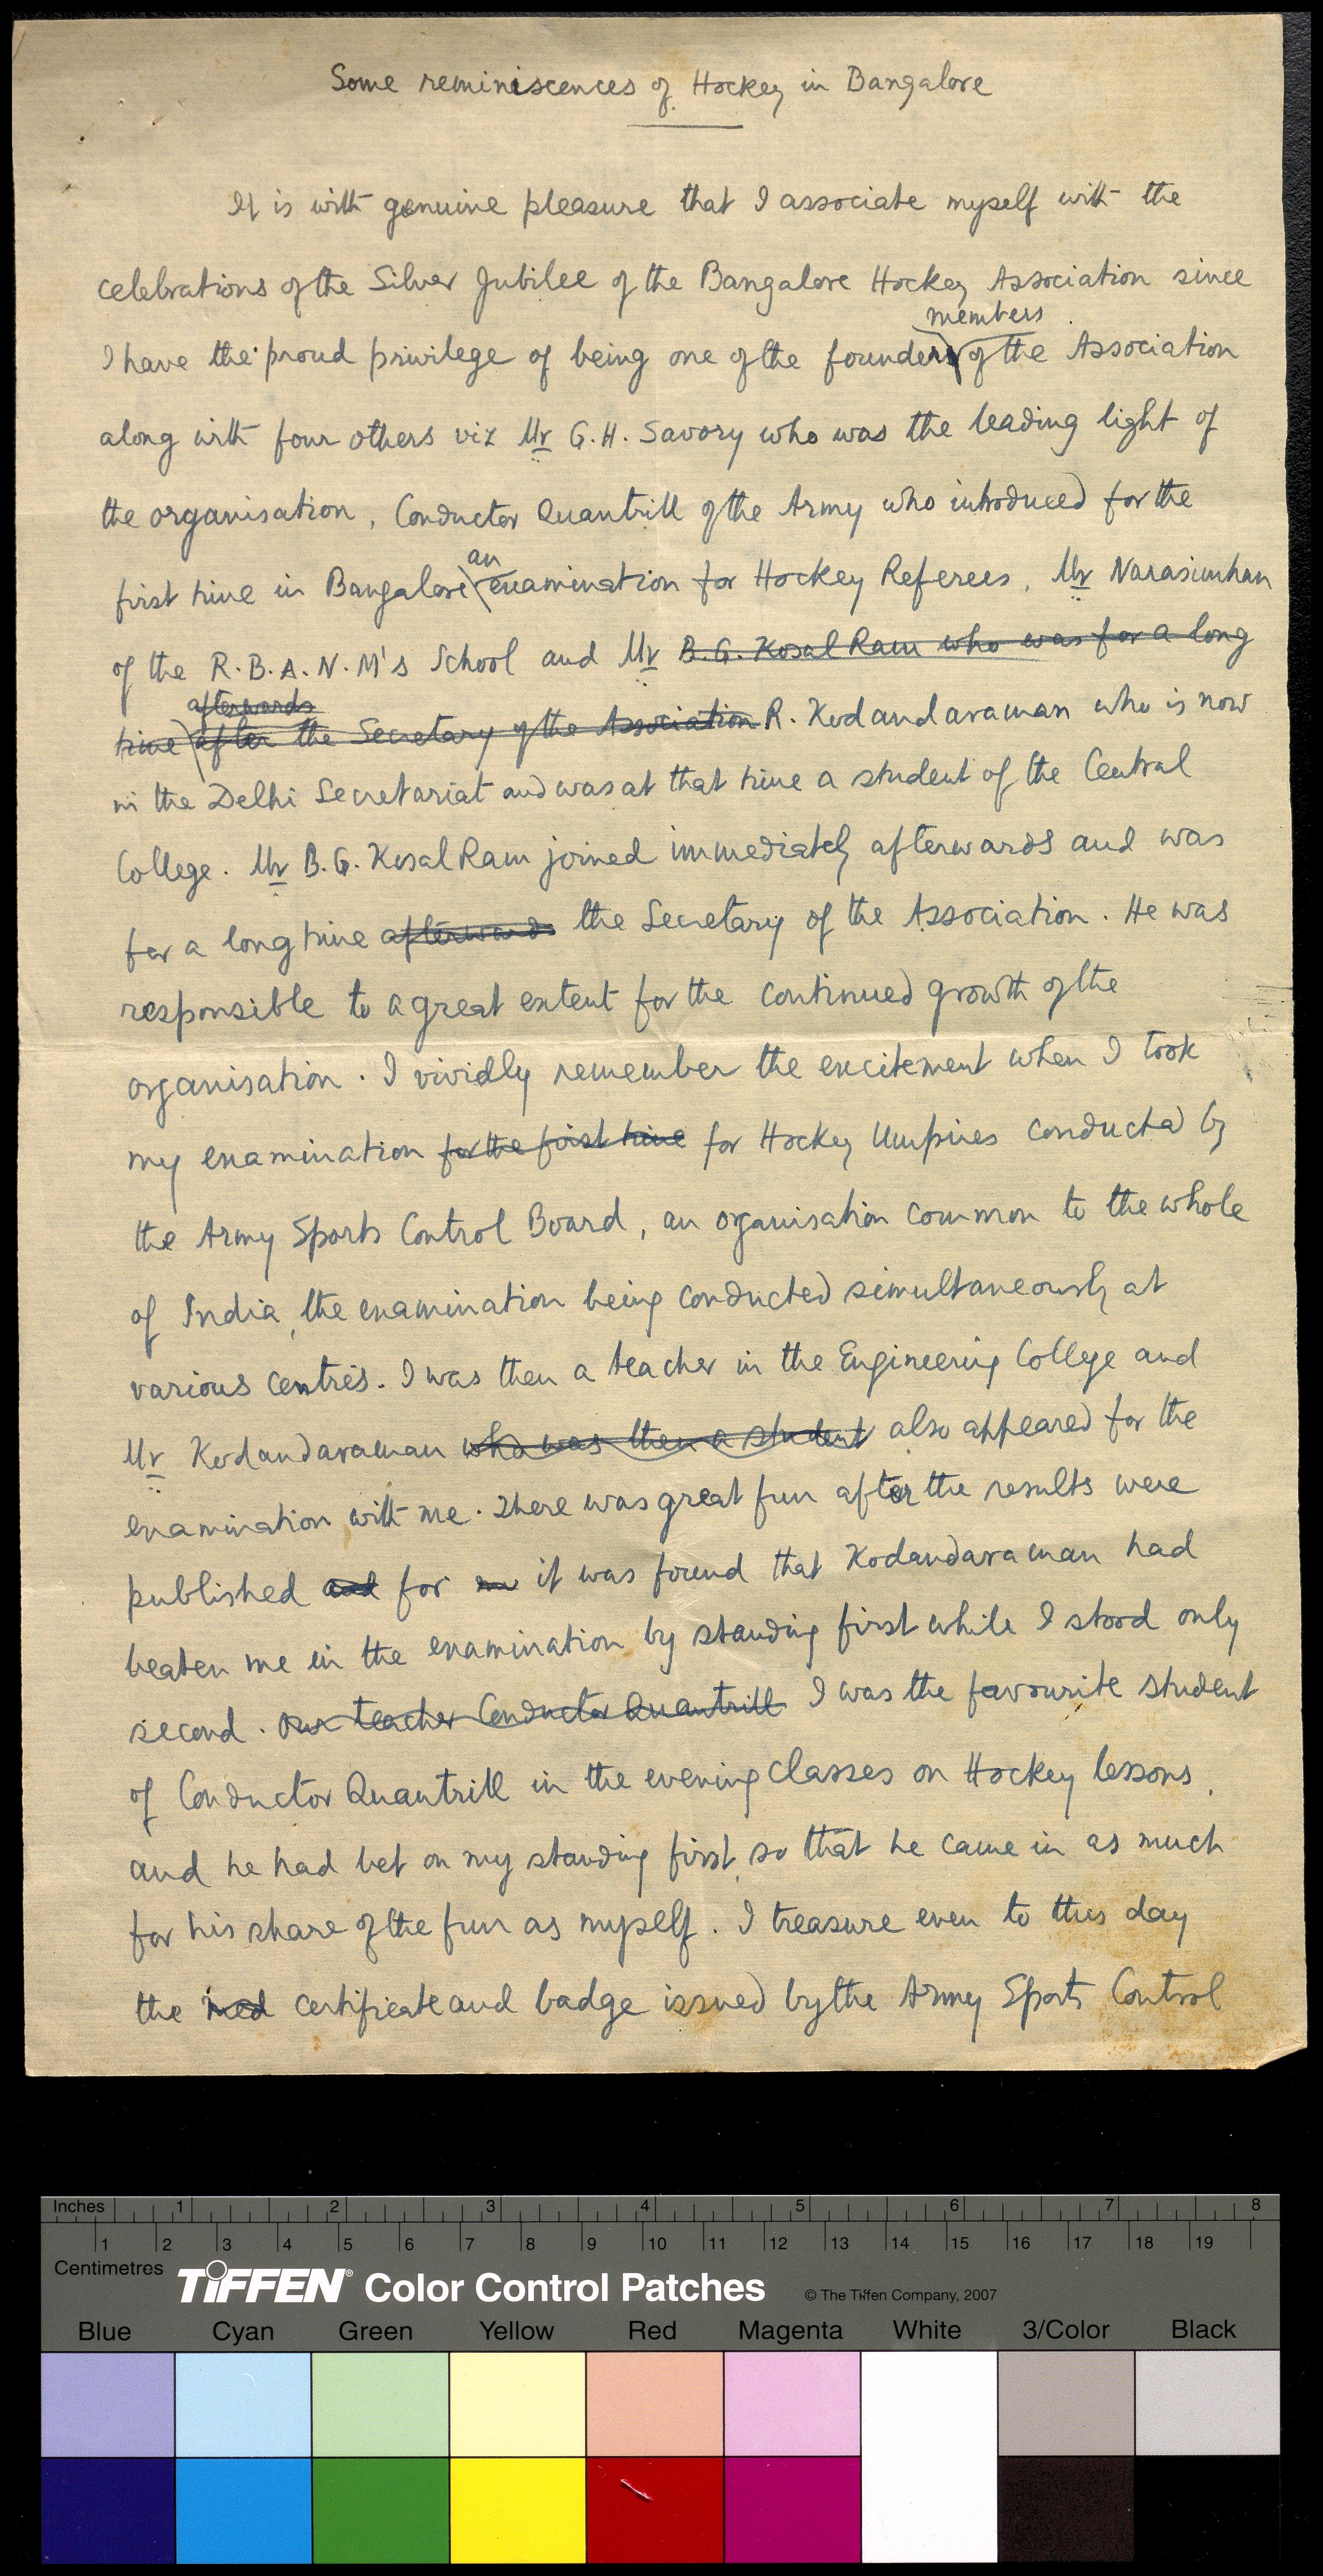 Some reminiscences of Hockey in Bangalore
It is with genuine pleasure that I associate myself with the
celebrations of the Silver Jubilee of the Bangalore Hockey Association since
members
I have the proud privilege of being one of the founder of the Association
along with four others viz Mr G.H. Savory who was the leading light of
the organisation, Conductor Quantrill of the Army who introduced for the
an
first time in Bangalore examination for Hockey Referees, Mr Narasimhan
of the R.B.A.N.M's School and Mr B.G. Kosal Ram who was for a long
afterwards
time after the Secretary of the Association R. Kodandaraman who is now
in the Delhi Secretariat and was at that time a student of the Central
College. Mr B.G. Kosal Ram joined immediately afterwards and was
for a long time afterwards the Secretary of the Association. He was
responsible to a great extent for the continued growth of the
organisation. I vividly remember the excitement when I took
my examination for the first time for Hockey Umpires conducted by
the Army Sports Control Board, an organisation common to the whole
of India, the examination being conducted simultaneously at
various centres. I was then a teacher in the Engineering College and
Mr Kodandaraman who was then a student also appeared for the
examination with me. There was great fun after the results were
published and for it was found that Kodandaraman had
beaten me in the examination by standing first while I stood only
second. Our teacher Conductor Quantrill I was the favourite student
of Conductor Quantrill in the evening classes on Hockey lessons,
and he had bet on my standing first, so that he came in as much
for his share of the fun as myself. I treasure even to this day
the certificate and badge issued by the Army Sports Control
Inches 1 2 3 4 5 6 7 8
1 2 3 4 5 6 7 8 9 10 11 12 13 14 15 16 17 18 19
Centimetres
TIFFEN® Color Control Patches © The Tiffen Company, 2007
Blue Cyan Green Yellow Red Magenta White 3/Color Black